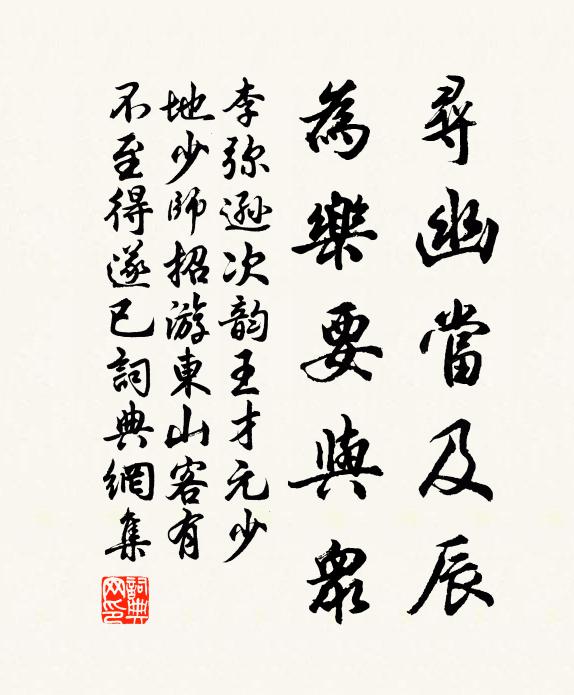 尋幽當及辰
為樂要與眾
李弥遜次韵王才元少
地少師招游東山客有
不至得遂已詞典網集
詞典
网印